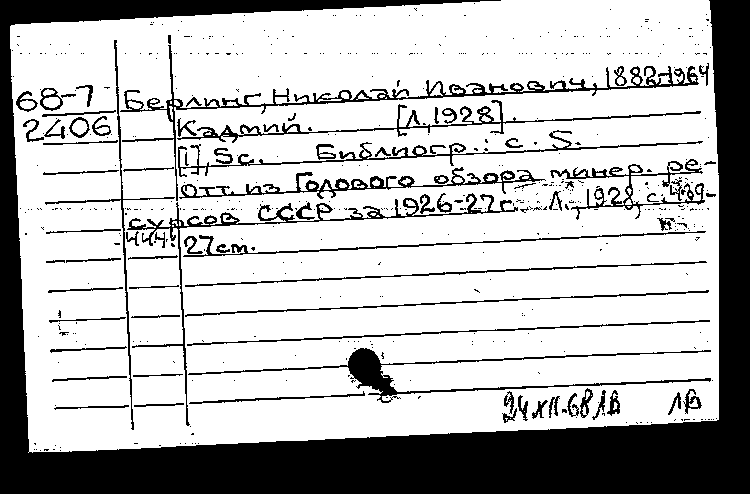 68-7 Берлинг, Николай Иванович, 1882-1964
2406 Кадмий. [Л., 1928].
[1], 5с. Библиогр.: с. 5.
Отт. из Годового обзора минер. ре-
сурсов СССР за 1926-27г. Л., 1928, с. 439-
444. 27 cm.
24 XII-68 ЛВ ЛВ